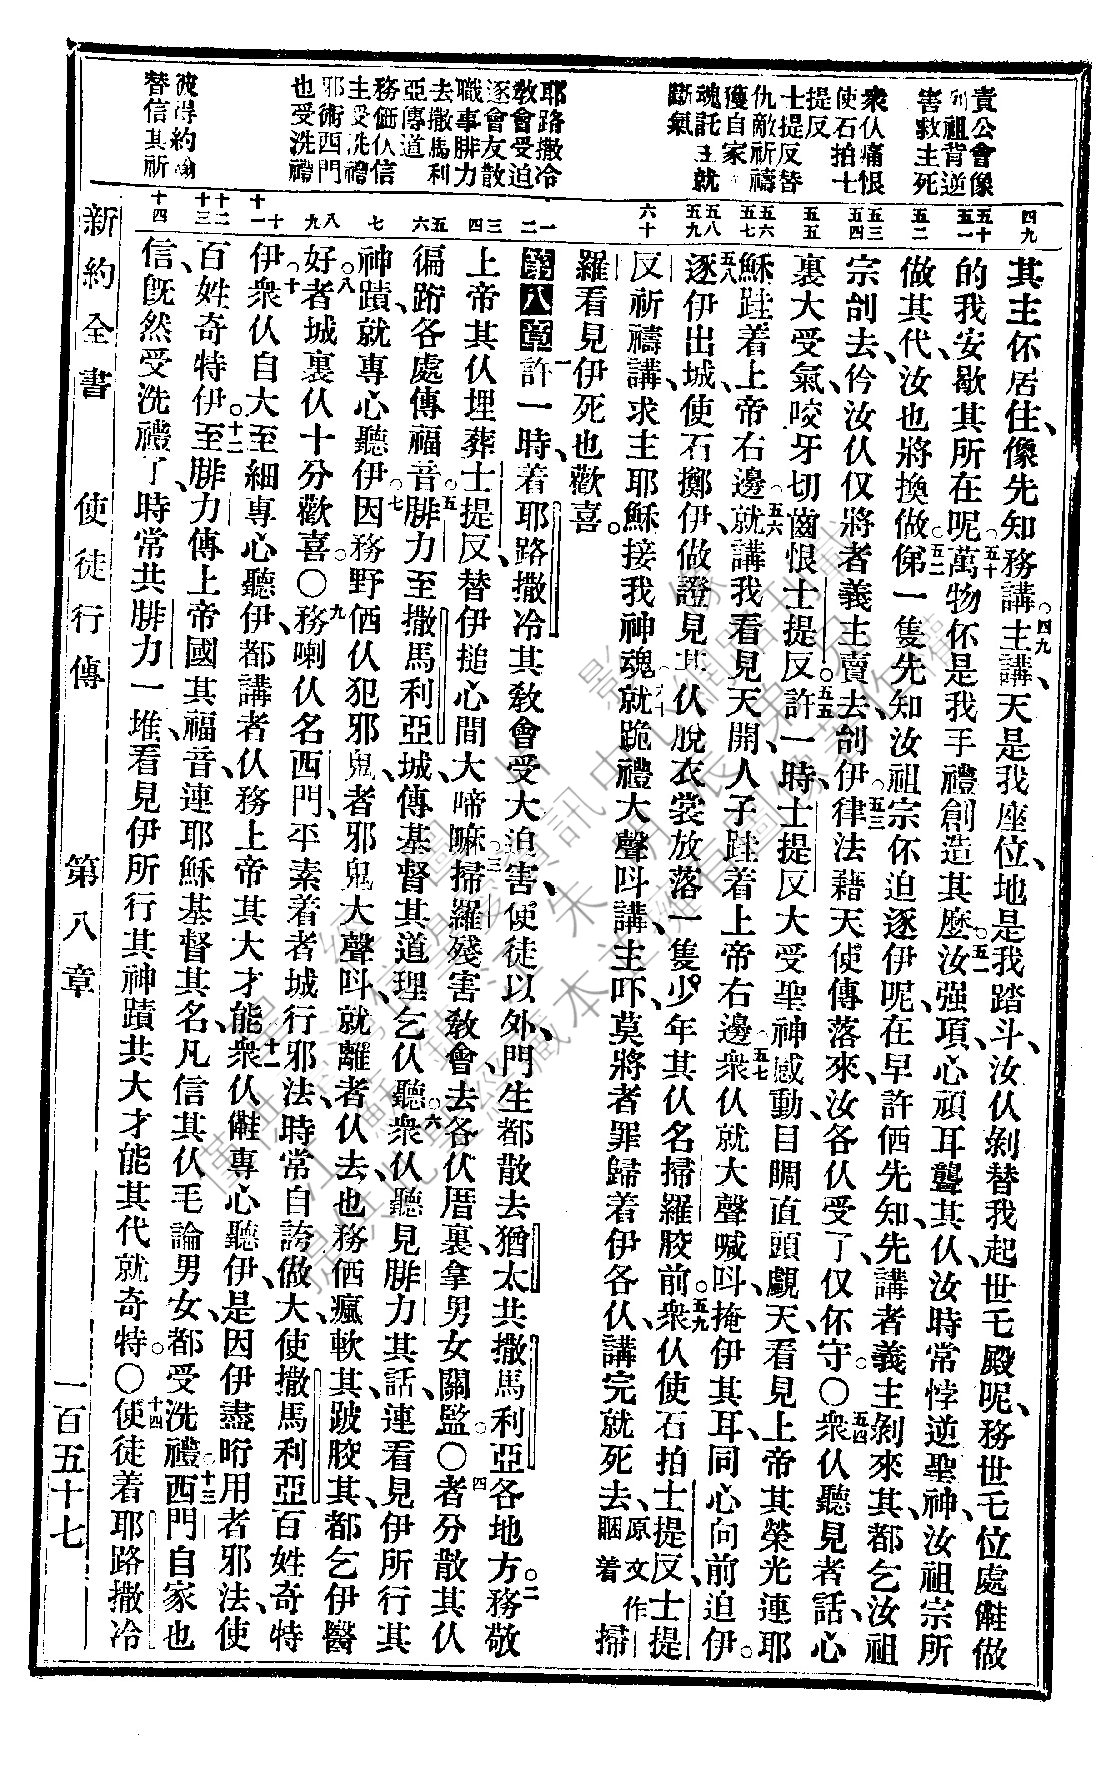 責公會像
祖背逆
害救主死
衆仈痛恨
使石拍士
提反
士提反替
仇敵祈禱
獲自家
魂託主就
斷氣
耶路撒冷
敎會受迫
逐會友散
職事腓力
去撒馬利
亞傳道
務価仈信
主受洗禮
邪術西門
也受洗禮
彼得約翰
替信其祈
四九
五十
五一
五二
五三
五四
五五
五六
五七
五八
五九
六十
一
二
三
四
五
六
七
八
九
十
十一
十二
十三
十四
其主伓居住、像先知務講。四九主講、天是我座位、地是我踏斗、汝仈剝替我起世乇殿呢、務世乇位處儺做
的我安歇其所在呢。五十萬物伓是我手禮創造其麽。五一汝强項、心頑耳聾其仈、汝時常悖逆聖神、汝祖宗所
做其代、汝也將換做。五二俤一隻先知汝祖宗伓迫逐伊呢、在早許価先知、先講者義主剝來其、都乞汝祖
宗刣去、伶汝仈仅將者義主賣去刣伊。五三律法藉天使傳落來、汝各仈受了仅伓守。〇五四衆仈聽見者話、心
裏大受氣、咬牙切齒恨士提反。〇五五許一時、士提反大受聖神感動、目睭直頭覷天、看見上帝其榮光、連耶
穌跬着上帝右邊。五六就講、我看見天開、人子跬着上帝右邊。五七衆仈就大聲喊叫、掩伊其耳、同心向前迫伊。
五八逐伊出城、使石擲伊、做證見其仈脫衣裳放落一隻少年其仈名掃羅骹前。五九衆仈使石拍士提反、士提
反祈禱講、求主耶穌接我神魂。六十就跪禮大聲叫講、主吓、莫將者罪歸着伊各仈、講完就死去、原文作睏着掃
羅看見伊死也歡喜。
第八章一許一時、着耶路撒冷其敎會受大迫害、使徒以外、門生都散去猶太共撒馬利亞各地方。二務敬
上帝其仈埋葬士提反、替伊搥心間大啼嘛。三掃羅殘害敎會、去各仈厝裏、拿男女關監。〇四者分散其仈
徧跡各處傳福音。五腓力至撒馬利亞城、傳基督其道理乞仈聽。六衆仈聽見腓力其話、連看見伊所行其
神蹟、就專心聽伊。七因務野価仈犯邪鬼、者邪鬼大聲叫、就離者仈去、也務価瘋軟其、跛骹其、都乞伊醫
好。八者城裏仈十分歡喜。〇九務喇仈名西門、平素着者城行邪法、時常自誇做大、使撒馬利亞百姓奇特
十伊衆仈自大至細專心聽伊、都講者仈務上帝其大才能。十一衆仈儺專心聽伊、是因伊盡昕用者邪法、使
百姓奇特伊。十二至腓力傳上帝國其福音、連耶穌基督其名、凡信其仈毛論男女、都受洗禮。十三西門自家也
信、旣然受洗禮了、時常共腓力一堆、看見伊所行其神蹟共大才能其代、就奇特。〇十四使徒着耶路撒冷
新約全書　使徒行傳　第八章　一百五十七